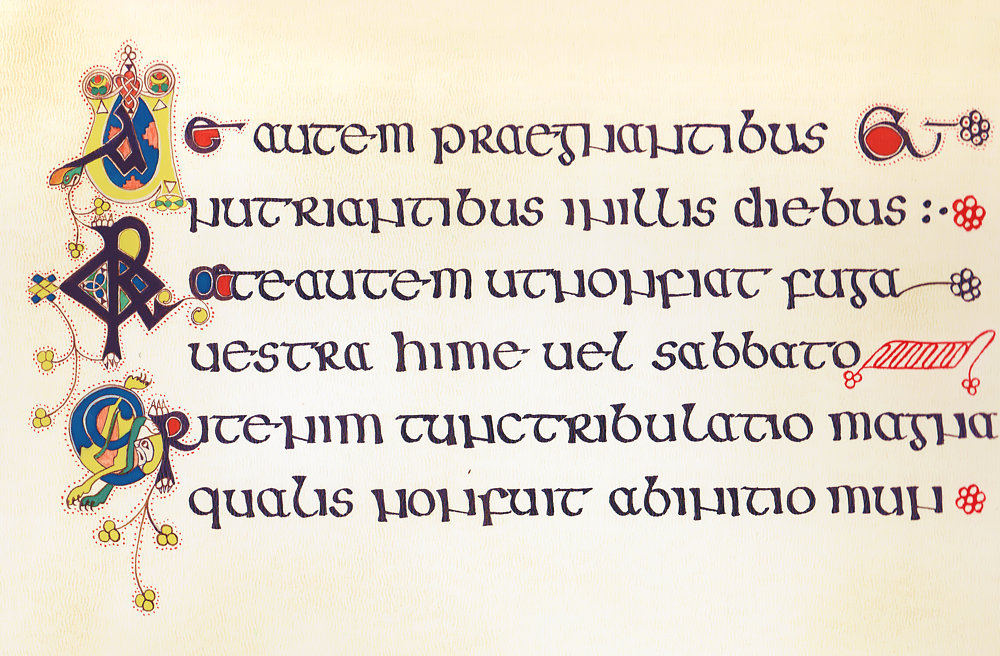 Uae autem praegnantibus &
nutriantibus inillis diebus :·
Orateautem utnonfiat fuga
uestra hime uel sabbato
Eritenim tunctribulatio magna
qualis nonfuit abinitio mun